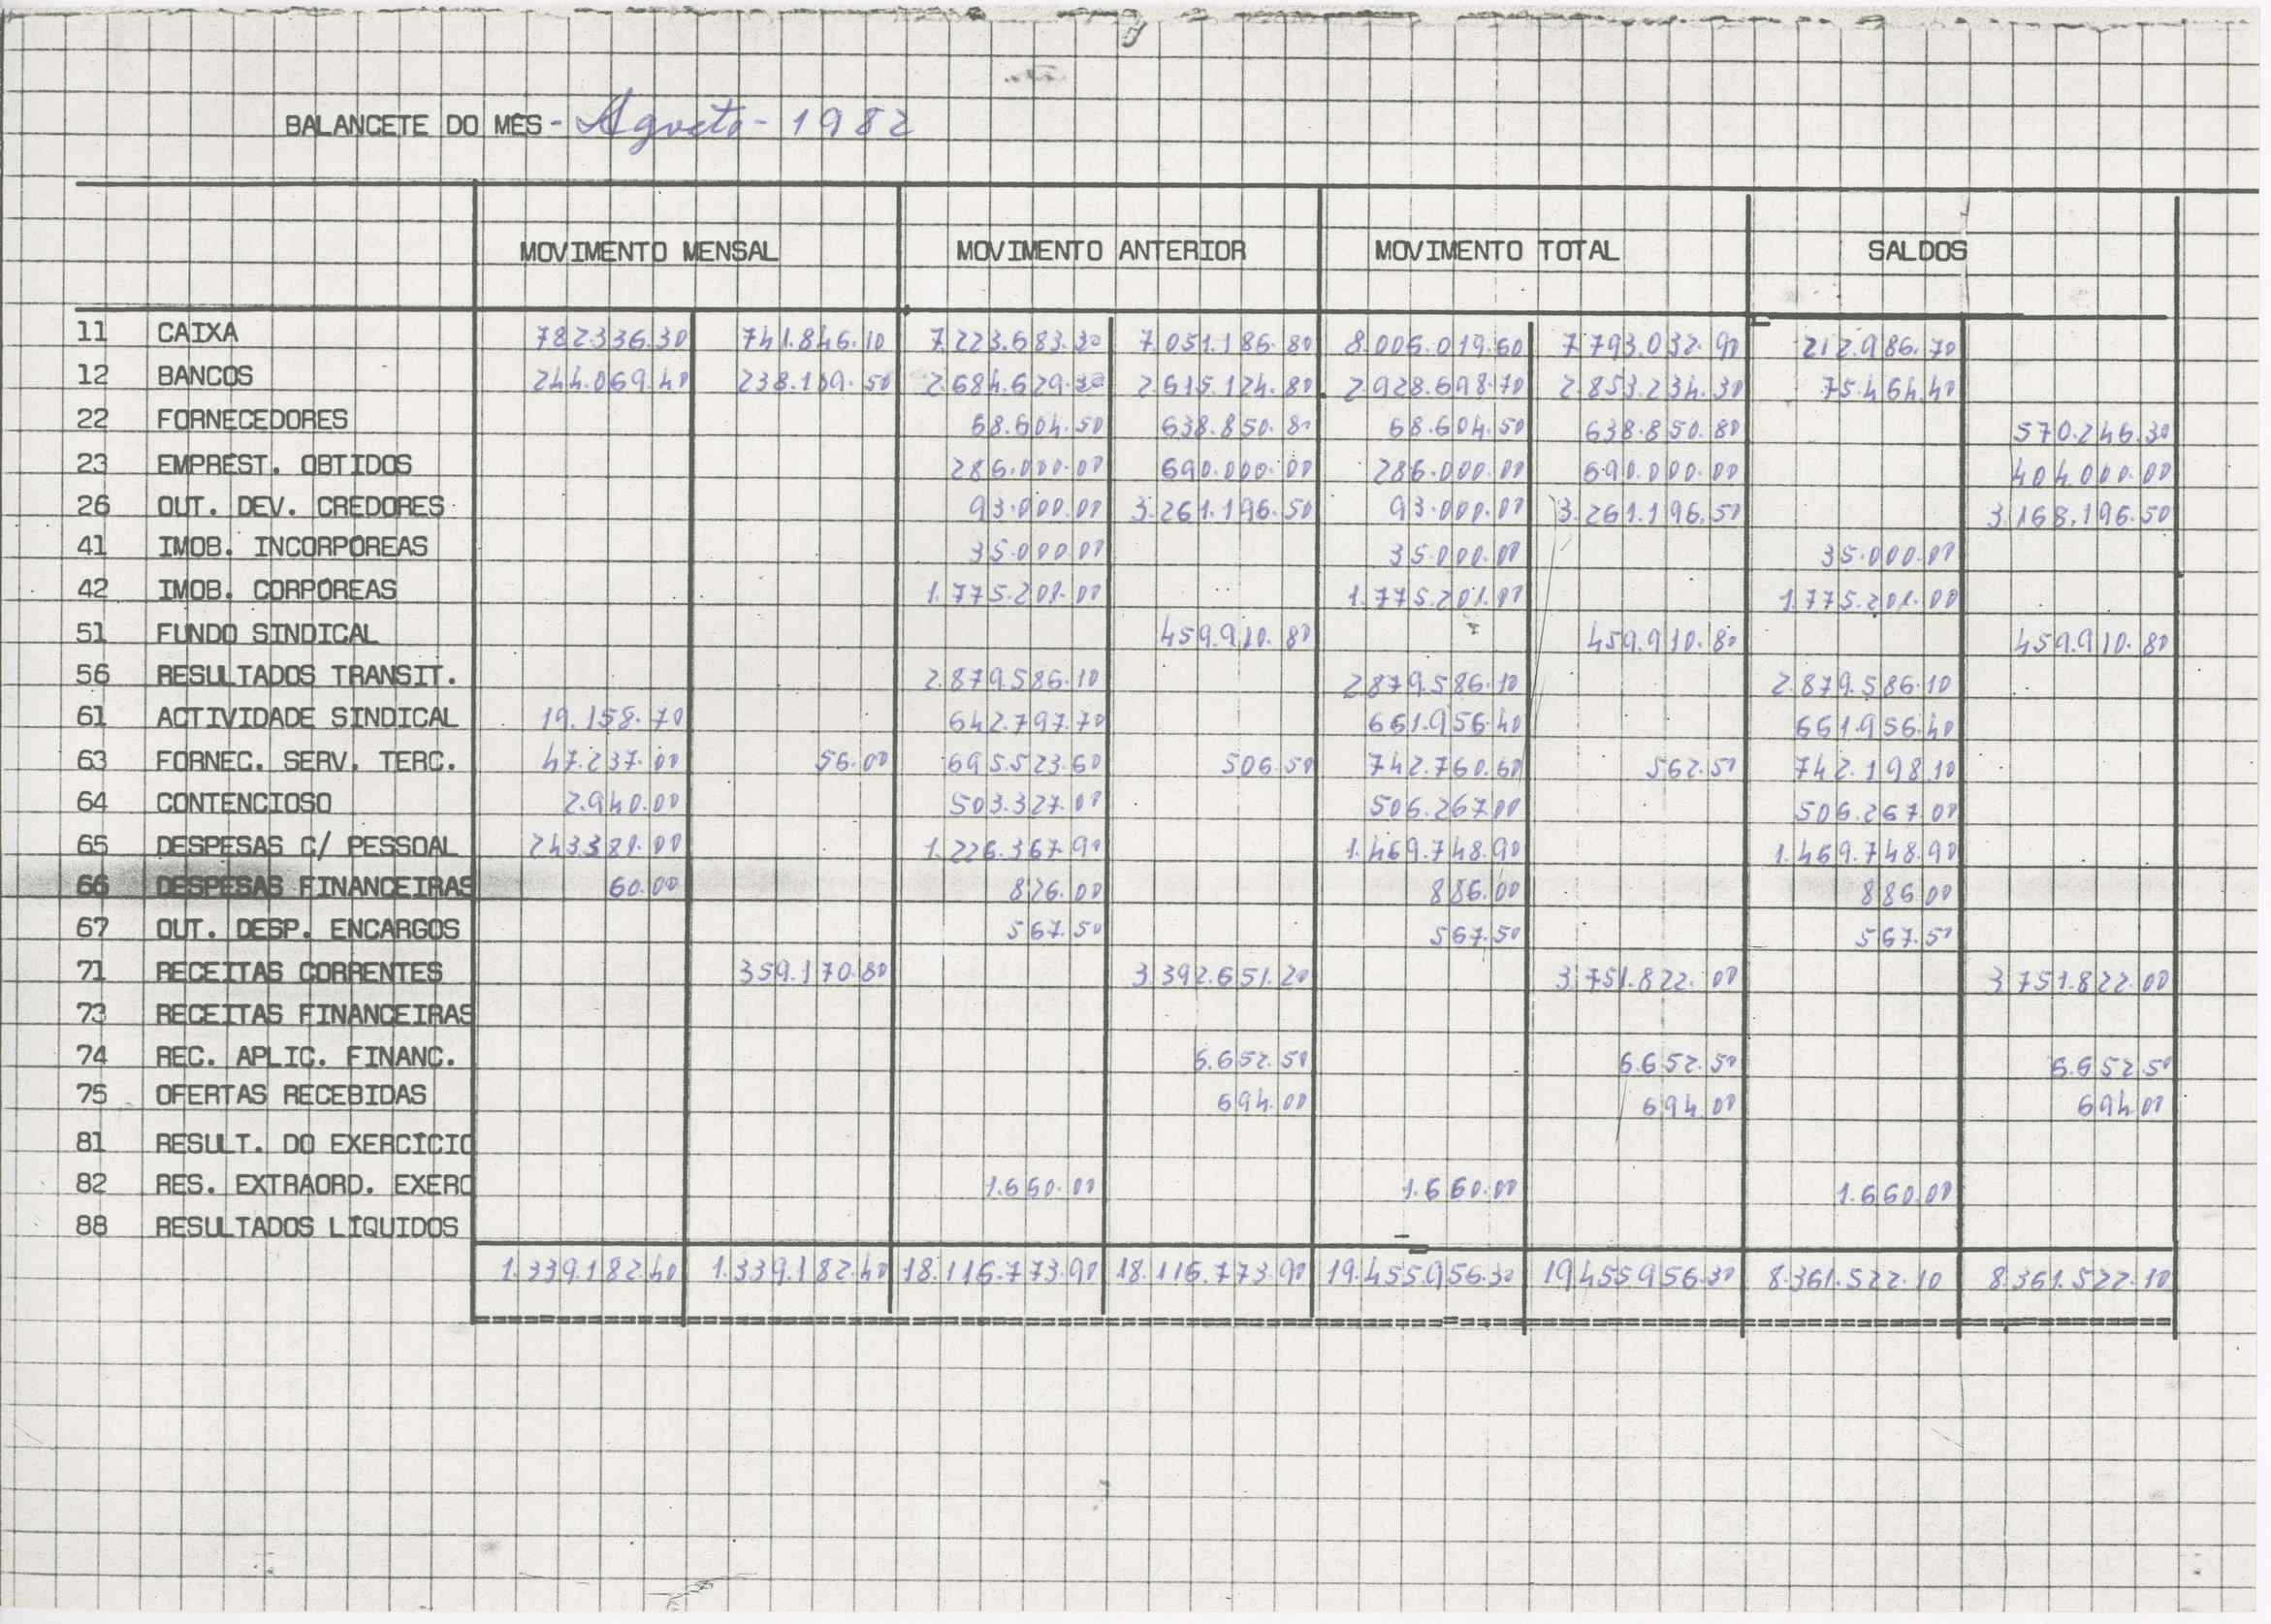 BALANCETE DO MÊS - Agosto - 1982
MOVIMENTO MENSAL MOVIMENTO ANTERIOR MOVIMENTO TOTAL SALDOS
11 CAIXA 782.336.30 741.846.10 7.223.683.30 7.051.186.80 8.006.019.60 7.793.032.90 212.986.70
12 BANCOS 244.069.40 238.109.50 2.684.629.30 2.615.124.80 2.928.698.70 2.853.234.30 75.464.40
22 FORNECEDORES 68.604.50 638.850.80 68.604.50 638.850.80 570.246.30
23 EMPRÉST. OBTIDOS 286.000.00 690.000.00 286.000.00 690.000.00 404.000.00
26 OUT. DEV. CREDORES 93.000.00 3.261.196.50 93.000.00 3.261.196.50 3.168.196.50
41 IMOB. INCORPÓREAS 35.000.00 35.000.00 35.000.00
42 IMOB. CORPÓREAS 1.775.201.00 1.775.201.00 1.775.201.00
51 FUNDO SINDICAL 459.910.80 459.910.80 459.910.80
56 RESULTADOS TRANSIT. 2.879.586.10 2879.586.10 2.879.586.10
61 ACTIVIDADE SINDICAL 19.158.70 642.797.70 661.956.40 661.956.40
63 FORNEC. SERV. TERC. 47.237.00 56.00 695.523.60 506.50 742.760.60 562.50 742.198.10
64 CONTENCIOSO 2.940.00 503.327.00 506.267.00 506.267.00
65 DESPESAS C/ PESSOAL 243.381.00 1.226.367.90 1.469.748.90 1.469.748.90
66 DESPESAS FINANCEIRAS 60.00 826.00 886.00 886.00
67 OUT. DESP. ENCARGOS 567.50 567.50 567.50
71 RECEITAS CORRENTES 359.170.80 3.392.651.20 3.751.822.00 3.751.822.00
73 RECEITAS FINANCEIRAS
74 REC. APLIC. FINANC. 6.652.50 6.652.50 6.652.50
75 OFERTAS RECEBIDAS 694.00 694.00 694.00
81 RESULT. DO EXERCÍCIO
82 RES. EXTRAORD. EXERC 1.660.00 1.660.00 1.660.00
88 RESULTADOS LÍQUIDOS
1.339.182.40 1.339.182.40 18.116.773.90 18.116.773.90 19.455.956.30 19.455.956.30 8.361.522.10 8.361.522.10